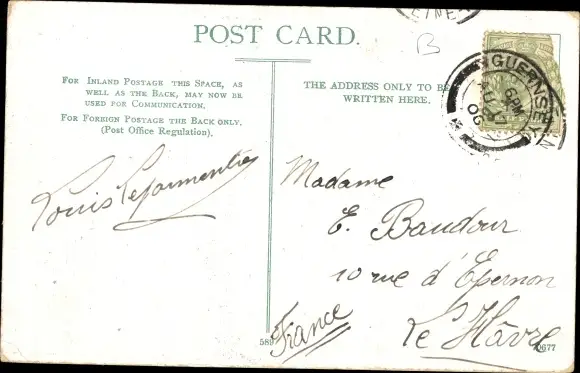 POST CARD.
FOR INLAND POSTAGE THIS SPACE, AS
WELL AS THE BACK, MAY NOW BE
USED FOR COMMUNICATION.
FOR FOREIGN POSTAGE THE BACK ONLY.
(Post Office Regulation).
THE ADDRESS ONLY TO BE
WRITTEN HERE.
B
GUERNSEY
6PM
AU
06
Louis
Madame
E. Baudour
10 rue d'Épernon
Le Hâvre
France
589